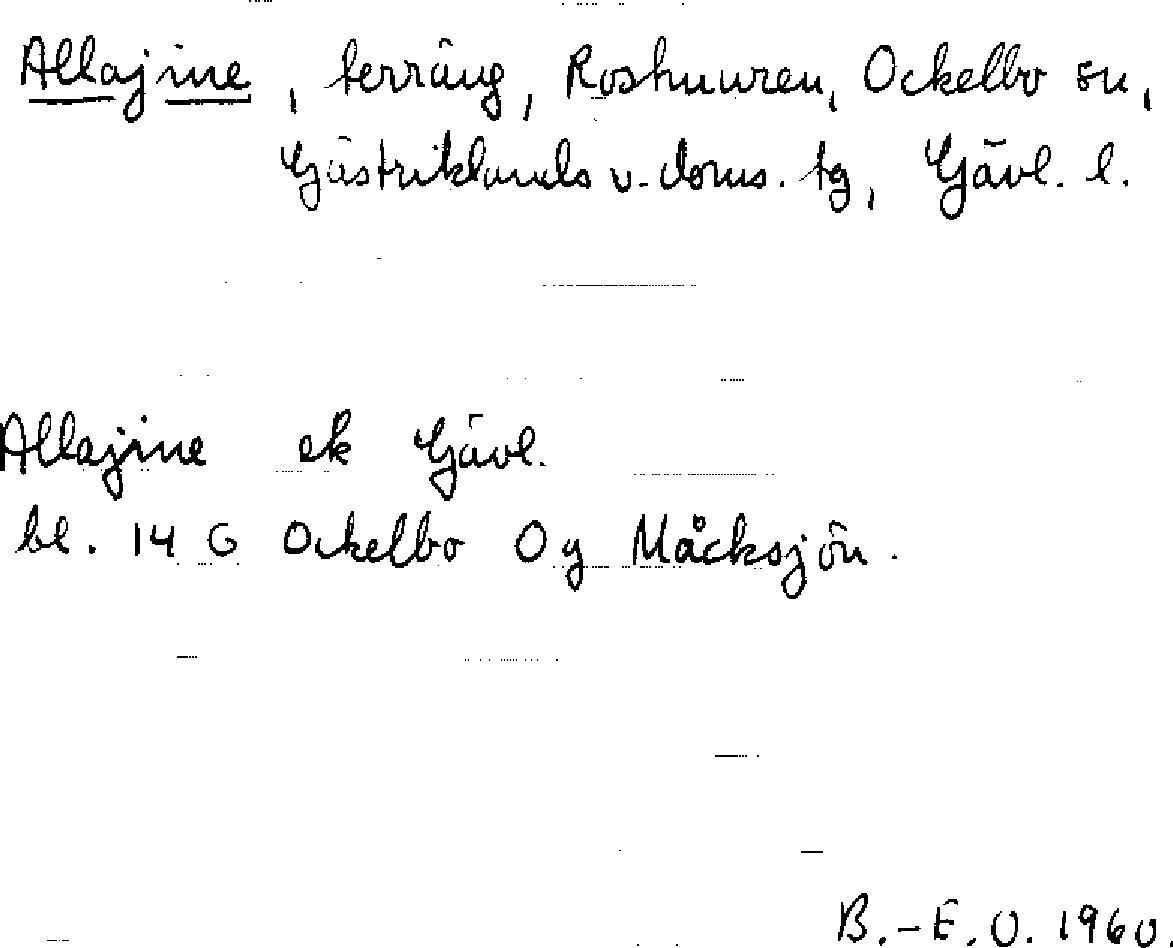 Allajine, terräng, Roshmuren, Ockelbo sn,
Gästriklands v. doms. tg, Gävl. l.
Allajine ek Gävl.
bl. 14 G Ockelbo Og Måcksjön.
B.-E. O. 1960.